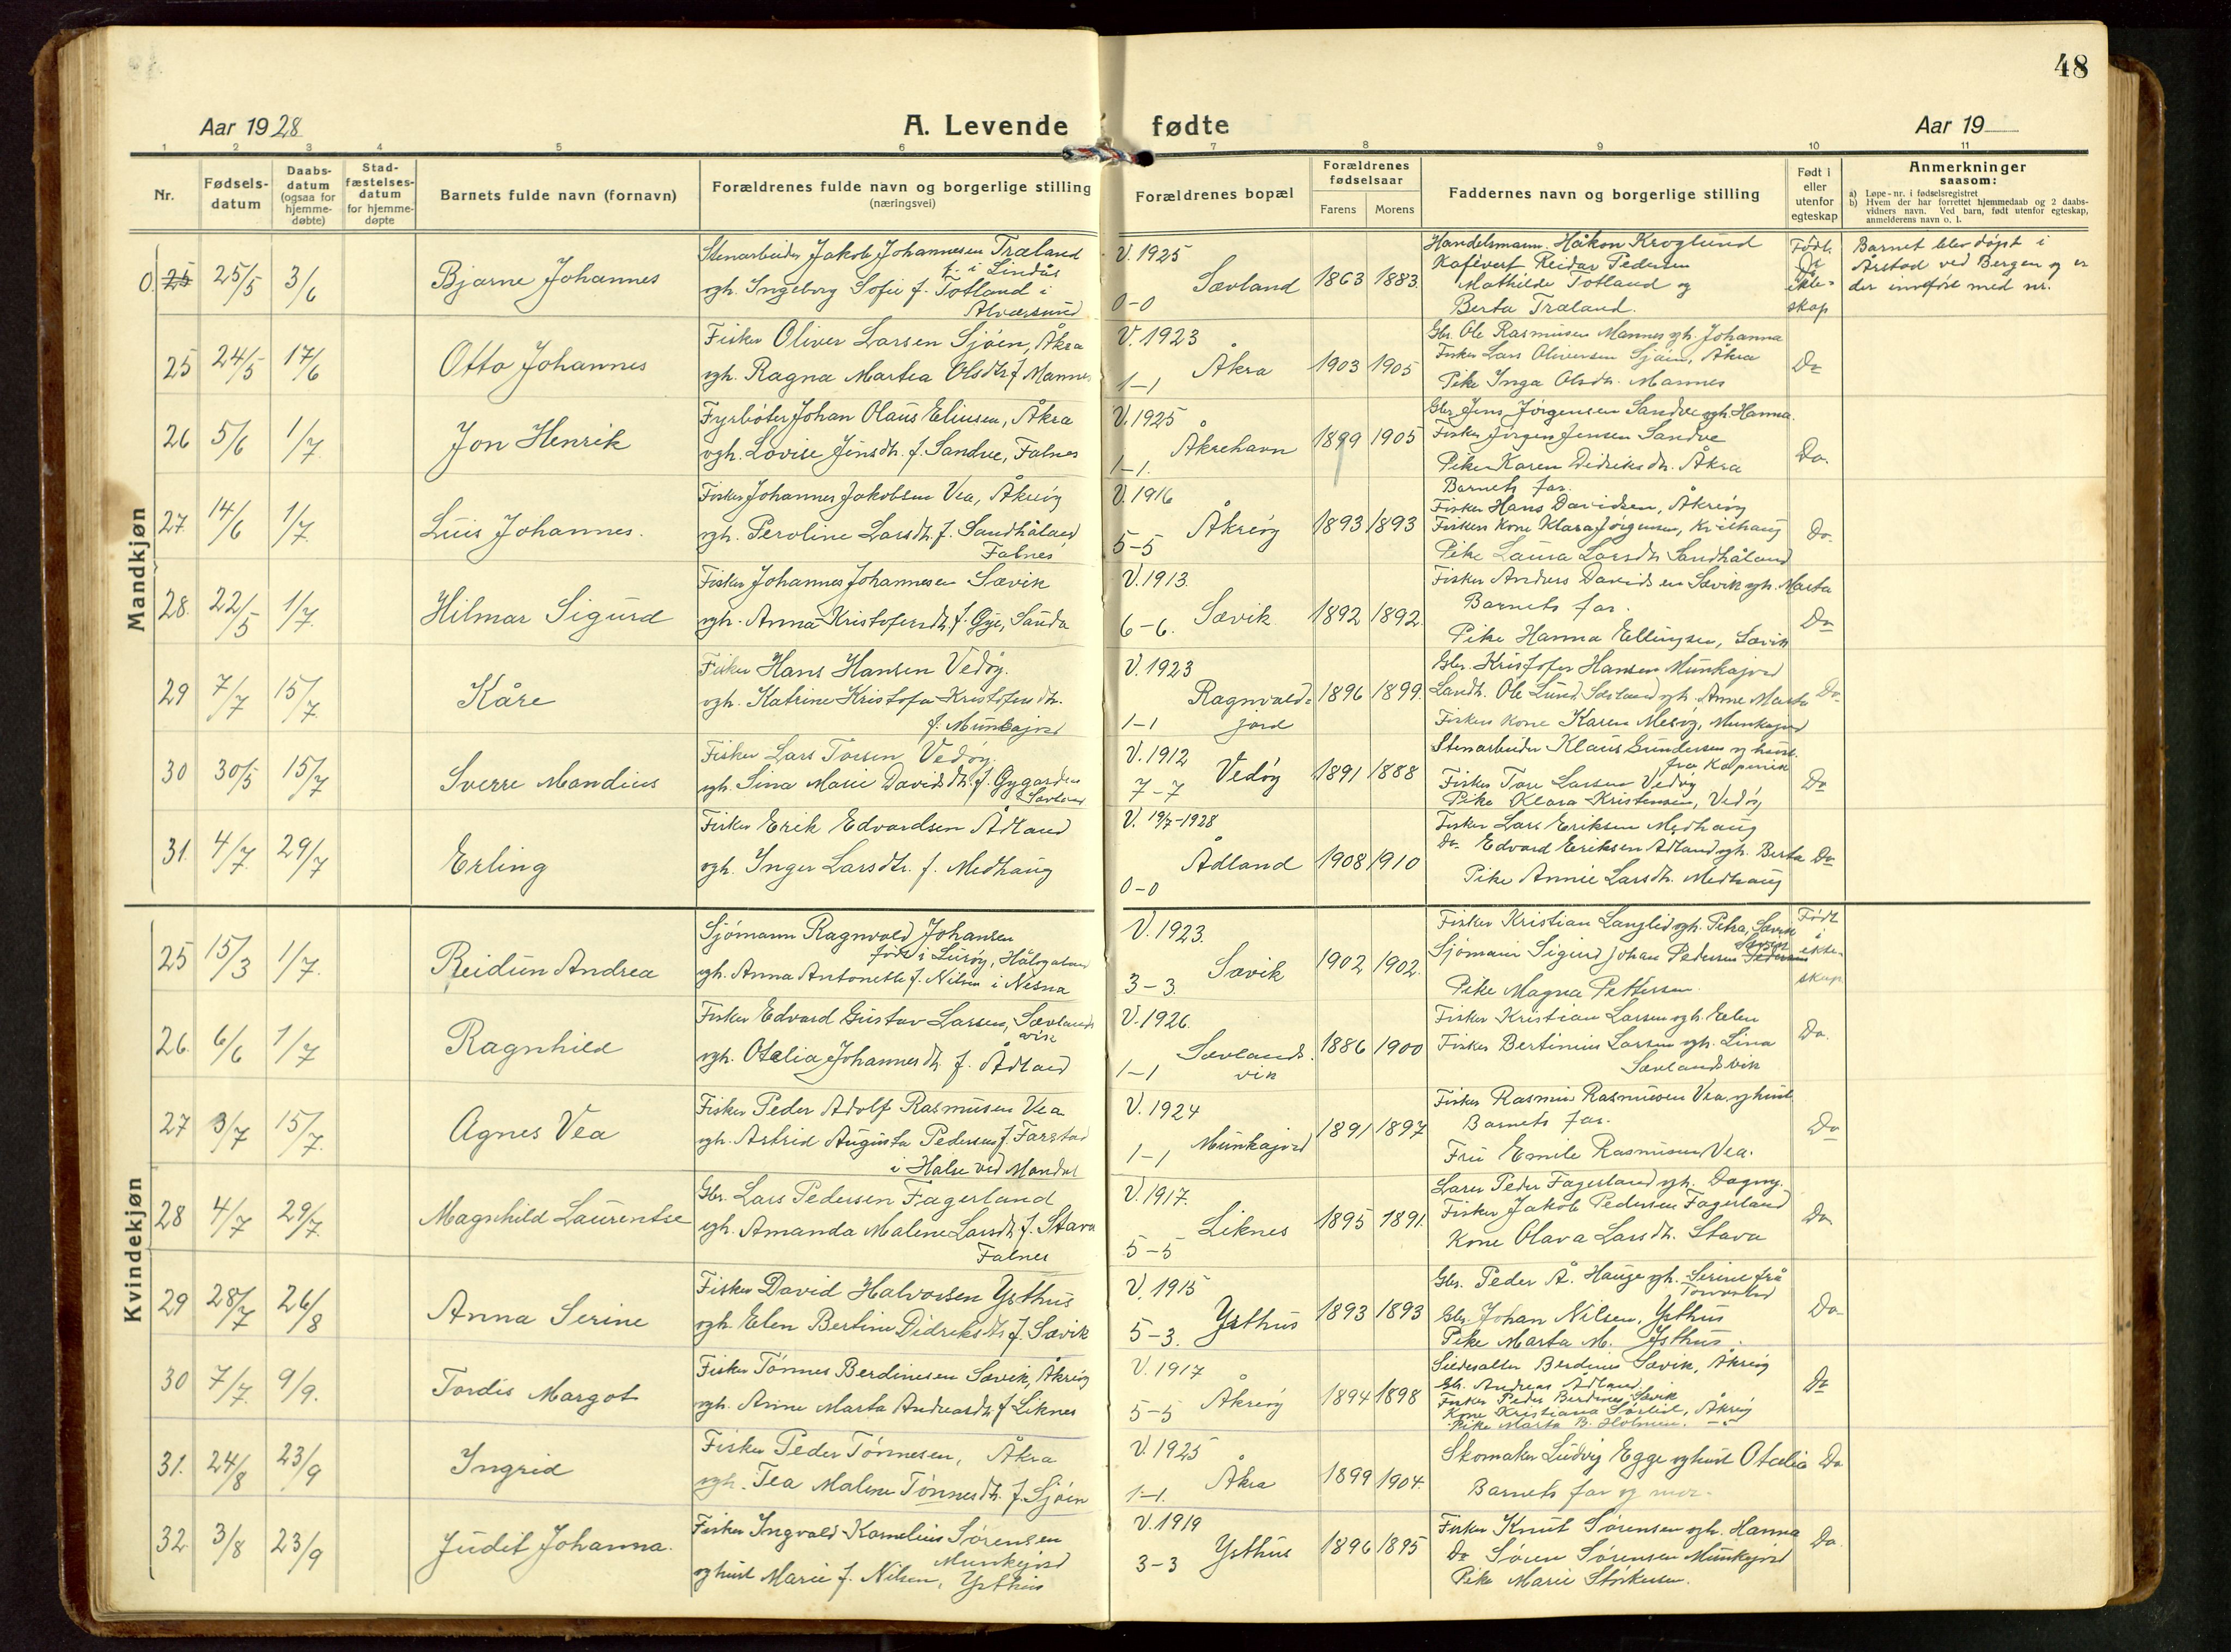 48
Aar 1928
A. Levende fødte
Aar 19
1 2 3 4 5 6 7 8 9 10 11
Nr.
Fødsels-
datum
Daabs-
datum
(ogsaa for
hjemme-
døbte)
Stad-
fæstelses-
datum
for hjemme-
døpte
Barnets fulde navn (fornavn)
Forældrenes fulde navn og borgerlige stilling
(næringsvei)
Forældrenes bopæl
Forældrenes
fødselsaar
Farens Morens
Faddernes navn og borgerlige stilling
Født i
eller
utenfor
egteskap
Anmerkninger
saasom:
a) Løpe-nr. i fødselsregistret
b) Hvem der har forrettet hjemmedaab og 2 daabs-
vidners navn. Ved barn, født utenfor egteskap,
anmelderens navn o. l.
Mandkjøn
0. 25 25/5 3/6 Bjarne Johannes
Stenarbeider Jakob Johannesen Træland
f. i Lindås
ogh. Ingeborg Sofie f. Totland i
Alversund
V. 1925
Sævland
0-0
1863 1883.
Handelsmann. Håkon Kroglund
Kafévert Reidar Pedersen
Mathilde Totland og
Berta Træland.
Født
i
ekte-
skap
Barnet blev døpt i
Årstad ved Bergen og er
der innført med nr.
25 24/5 17/6 Otto Johannes
Fisker Oliver Larsen Sjøen, Åkra
ogh. Ragna Martea Olsdtr f. Mannes
V. 1923
Åkra
1-1
1903 1905
Gbr. Ole Rasmusen Mannes ogh. Johanna
Fisker Lars Oliversen Sjøen, Åkra
Pike Inga Olsdtr. Mannes
Do
26 5/6 1/7 Jon Henrik
Fyrbøter Johan Olaus Eliusen, Åkra
ogh. Lovise Jensdtr. f. Sandve, Falnes
V. 1925
Åkrehavn
1-1.
1899 1905
Gbr. Jens Jørgensen Sandve ogh. Hanna.
Fisker Jørgen Jensen Sandve
Pike Karen Didriksdtr. Åkra
Do.
27. 14/6 1/7. Luis Johannes.
Fisker Johannes Jakobsen Vea, Åkreøy
ogh. Peroline Larsdtr. f. Sandhåland
Falnes
V. 1916
Åkrøy
5-5
1893 1893
Barnets far.
Fisker Hans Davidsen, Åkreøy
Fiskers kone Klara Jørgensen, Kvilhaug
Pike Laura Larsdtr Sandhåland
Do.
28. 22/5 1/7. Hilmar Sigurd
Fisker Johannes Johannesen Sævik
ogh. Anna Kristofersdtr. f. Gye, Sauda
V. 1913.
Sævik
6-6.
1892 1892.
Fisker Andreas Davidsen Sævik ogh. Marta
Barnets far.
Pike Hanna Ellingsen, Sævik
Do
29 7/7 15/7. Kåre
Fisker Hans Hansen Vedøy.
ogh. Katrine Kristofa Kristofersdtr.
f. Munkajord
V. 1923
Ragnvald-
jord
1-1
1896 1899.
Gbr. Kristofer Hansen Munkajord
Landh. Ole Lund Sævland ogh. Anne Marta
Fiskers kone Karen Mesøy, Munkajord
Do
30 30/5 15/7 Sverre Mandius
Fisker Lars Torsen Vedøy.
ogh. Sina Marie Davidsdtr. f. Gygarden
Sævland
V. 1912
Vedøy
7-7
1891 1888
Stenarbeider Klaus Gundersen og hust.
fra Kopervik
Fisker Tore Larsen Vedøy
Pike Klara Kristensen, Vedøy
Do
31. 4/7. 29/7 Erling
Fisker Erik Edvardsen Ådland
ogh. Inger Larsdtr. f. Medhaug
V. 19/7-1928
Ådland
0-0
1908 1910
Fisker Lars Eriksen Medhaug
Do. Edvard Eriksen Ådland ogh. Berta
Pike Annie Larsdtr. Medhaug
Do
Kvindekjøn
25 15/3 1/7. Reidun Andrea
Sjømann Ragnvald Johansen
født i Lurøy, Hålogaland
ogh. Anna Antonette f. Nilsen i Nesna
V. 1923.
Sævik
3-3.
1902 1902.
Fisker Kristian Langlid ogh. Petra, Sævik
Sævik
Sjømann Sigurd Johan Pedersen
Pike Magna Pettersen.
Født
i
ekte-
skap
26. 6/6 1/7 Ragnhild
Fisker Edvard Gustav Larsen, Sævlands
vik
ogh. Otalia Johannesdtr. f. Ådland
V. 1926.
Sævlands
vik
1-1
1886 1900
Fisker Kristian Larsen ogh. Elen
Fisker Bertinius Larsen ogh. Lina
Sævlandsvik
Do.
27 3/7 15/7. Agnes Vea
Fisker Peder Adolf Rasmusen Vea
ogh. Astrid Augusta Pedersen f. Farstad
i Halse ved Mandal
V. 1924
Munkajord
1-1
1891 1897
Fisker Rasmus Rasmusen Vea og hust.
Barnets far.
Fru Emile Rasmusen Vea.
Do
28 4/7 29/7. Magnhild Laurentse
Gbr. Lars Pedersen Fagerland
ogh. Amanda Malene Larsdtr. f. Stava
Falnes
V. 1917.
Liknes
5-5
1895 1891.
Lærer Peder Fagerland ogh. Dagny.
Fisker Jakob Pedersen Fagerland
Kone Olava Larsdtr. Stava
Do.
29 28/7 26/8 Anna Serine
Fisker David Halvorsen Ysthus
ogh. Elen Bertine Didriksdtr f. Sævik
V. 1915
Ysthus
5-3.
1893 1893
Gbr. Peder Å. Hauge ogh. Serine frå
Torvastad
Gbr. Johan Nilsen, Ysthus
Pike Marta M. Ysthus.
Do
30 7/7. 9/9. Tordis Margot
Fisker Tønnes Berdinesen Sævik, Åkreøy
ogh. Anne Marta Andreasdtr. f. Liknes
V. 1917
Åkreøy
5-5
1894 1898
Sildesalter Berdinus Sævik, Åkreøy
Gbr. Andreas Ådland
Fisker Peder Berdines. Sævik
Kone Kristiana Sørlid, Åkreøy
Pike Marta B. Holmen.
Do
31. 24/8 23/9 Ingrid
Fisker Peder Tønnesen, Åkra
ogh. Tea Malene Tønnesdtr. f. Sjøen
V. 1925
Åkra
1-1.
1899 1904.
Skomaker Ludvig Egge og hust Otalia
Barnets far og mor.
Do
32. 3/8 23/9 Judit Johanna.
Fisker Ingvald Kornelius Sørensen
Munkejord
og hust Marie f. Nilsen, Ysthus
V. 1919
Ysthus
3-3
1896 1895
Fisker Knut Sørensen ogh. Hanna
Do Søren Sørensen Munkejord
Pike Marie Størkersen.
Do.